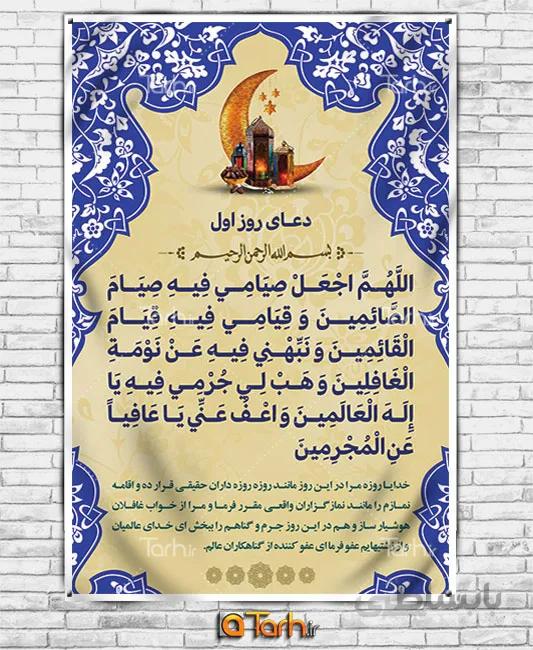 دعای روز اول
بسم الله الرحمن الرحیم
اللَّهُمَّ اجْعَلْ صِيَامِي فِيهِ صِيَامَ
الصَّائِمِينَ وَ قِيَامِي فِيهِ قِيَامَ
الْقَائِمِينَ وَ نَبِّهْنِي فِيهِ عَنْ نَوْمَةِ
الْغَافِلِينَ وَ هَبْ لِي جُرْمِي فِيهِ يَا
إِلَهَ الْعَالَمِينَ وَ اعْفُ عَنِّي يَا عَافِياً
عَنِ الْمُجْرِمِينَ
خدایا روزه مرا در این روز مانند روزه روزه داران حقیقی قرار ده و اقامه
نمازم را مانند نمازگزاران واقعی مقرر فرما و مرا از خواب غافلان
هوشیار ساز و هم در این روز جرم و گناهم را ببخش ای خدای عالمیان
و از زشتیهایم عفو فرما ای عفو کننده از گناهکاران عالم.
Tarh.ir
Tarh.ir
Tarh.ir
Tarh.ir
Tarh.ir